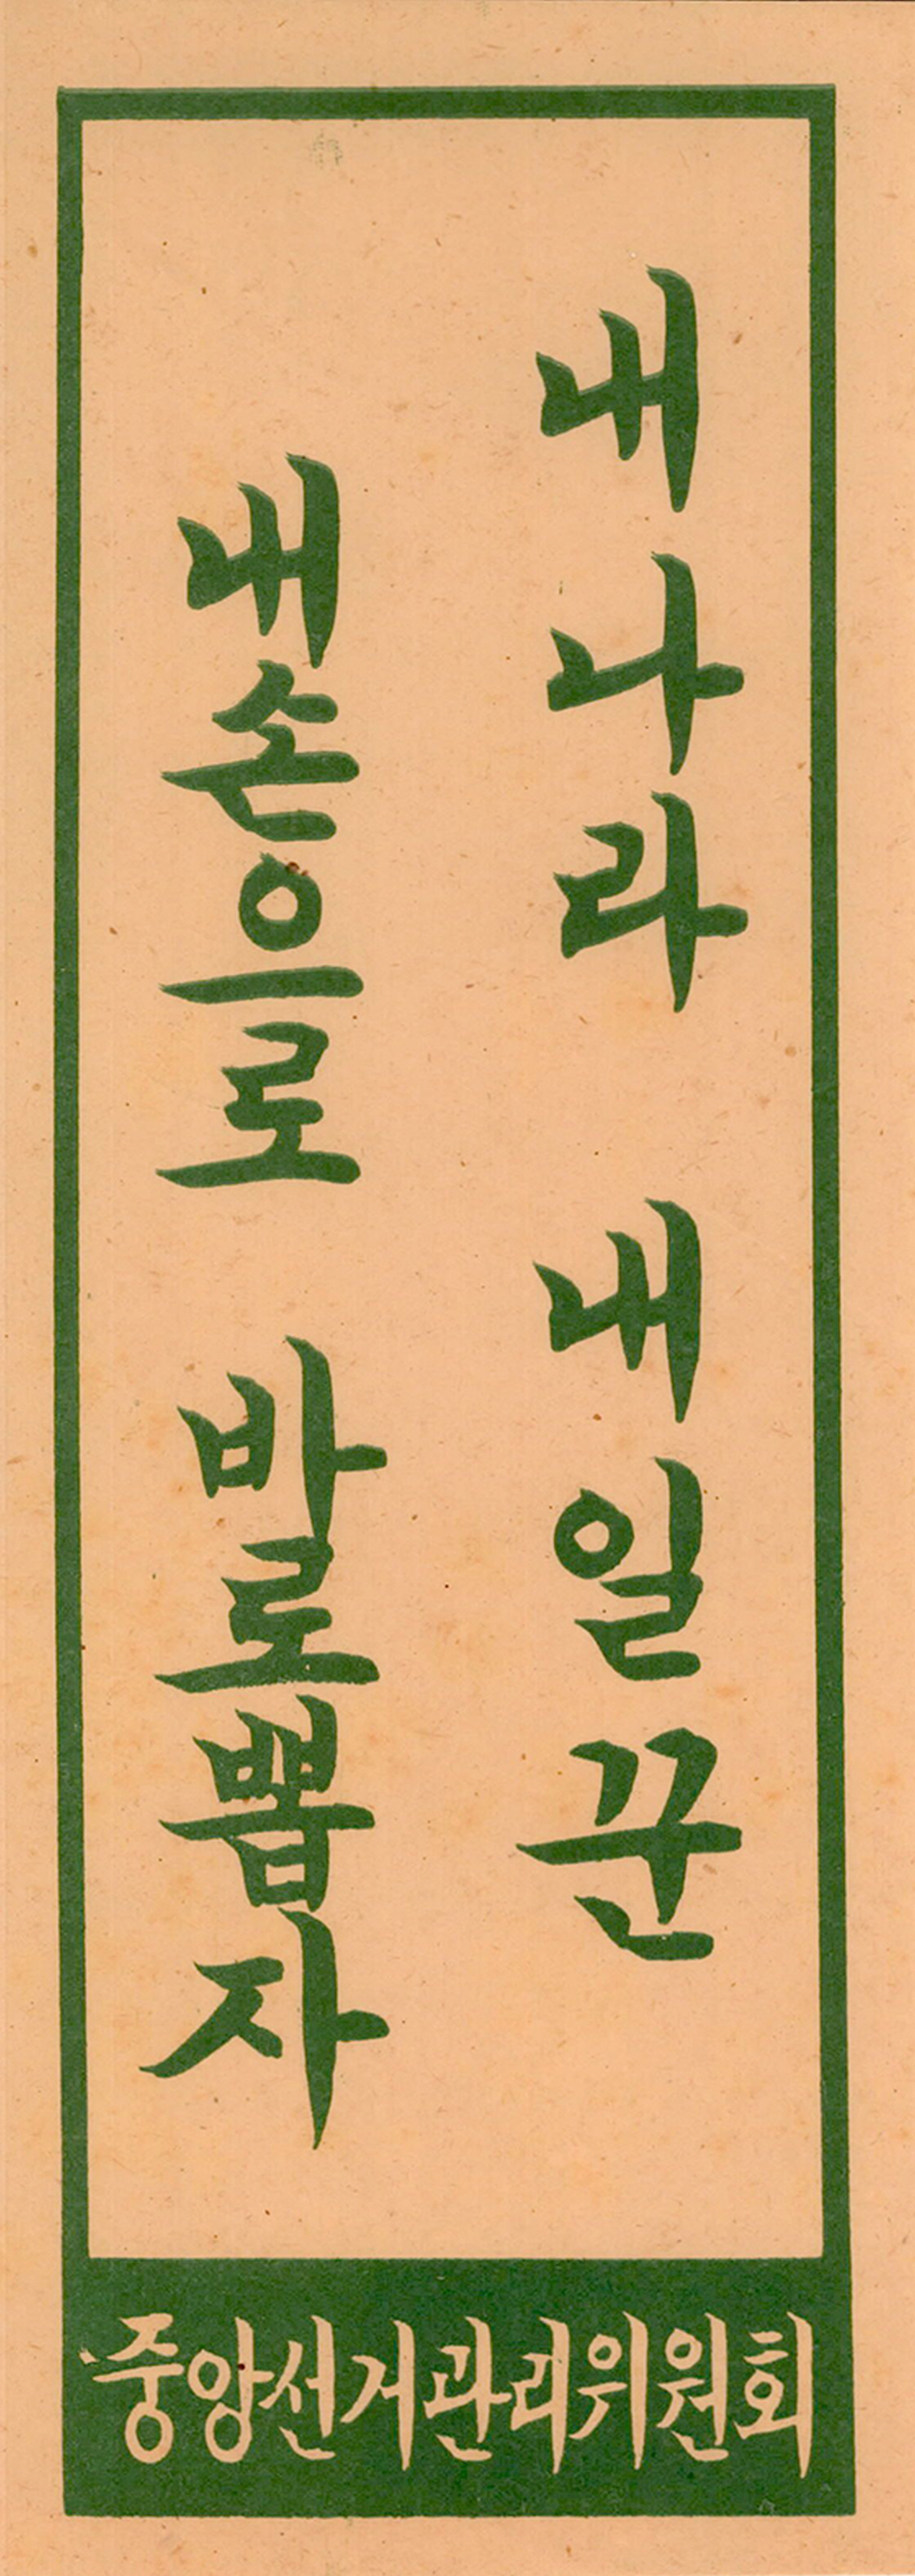 내나라 내일꾼
내손으로 바로뽑자
중앙선거관리위원회